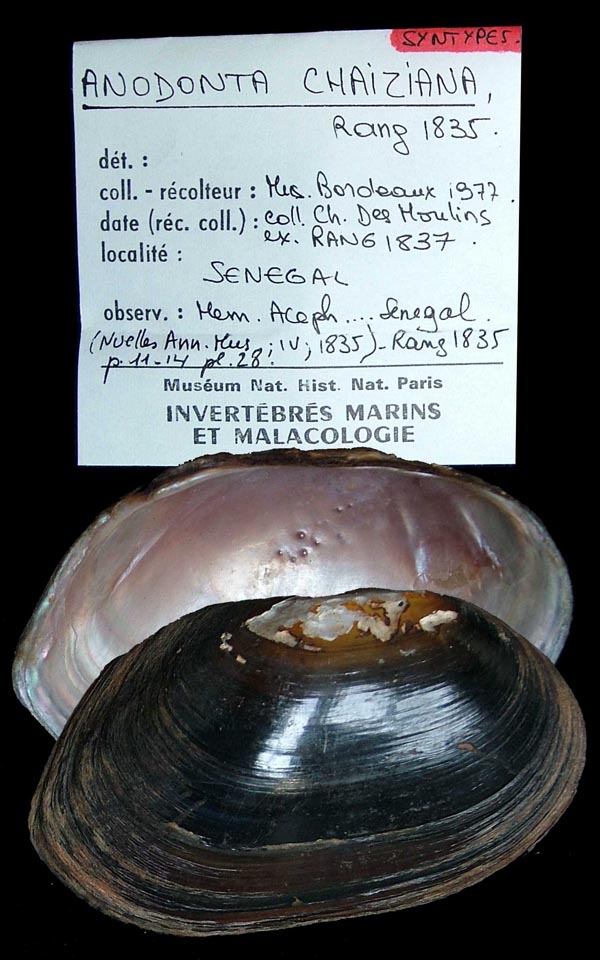 SYNTYPES.
ANODONTA CHAIZIANA,
Rang 1835.
dét. :
coll. - récolteur : Mus. Bordeaux 1977.
date (réc. coll.) : coll. Ch. Des Moulins
ex. RANG 1837.
localité :
SENEGAL
observ. : Mem. Aceph .... Senegal.
(Nuelles Ann. Mus ; IV ; 1835) - Rang 1835
p. 11-14 pl. 28.
Muséum Nat. Hist. Nat. Paris
INVERTÉBRÉS MARINS
ET MALACOLOGIE